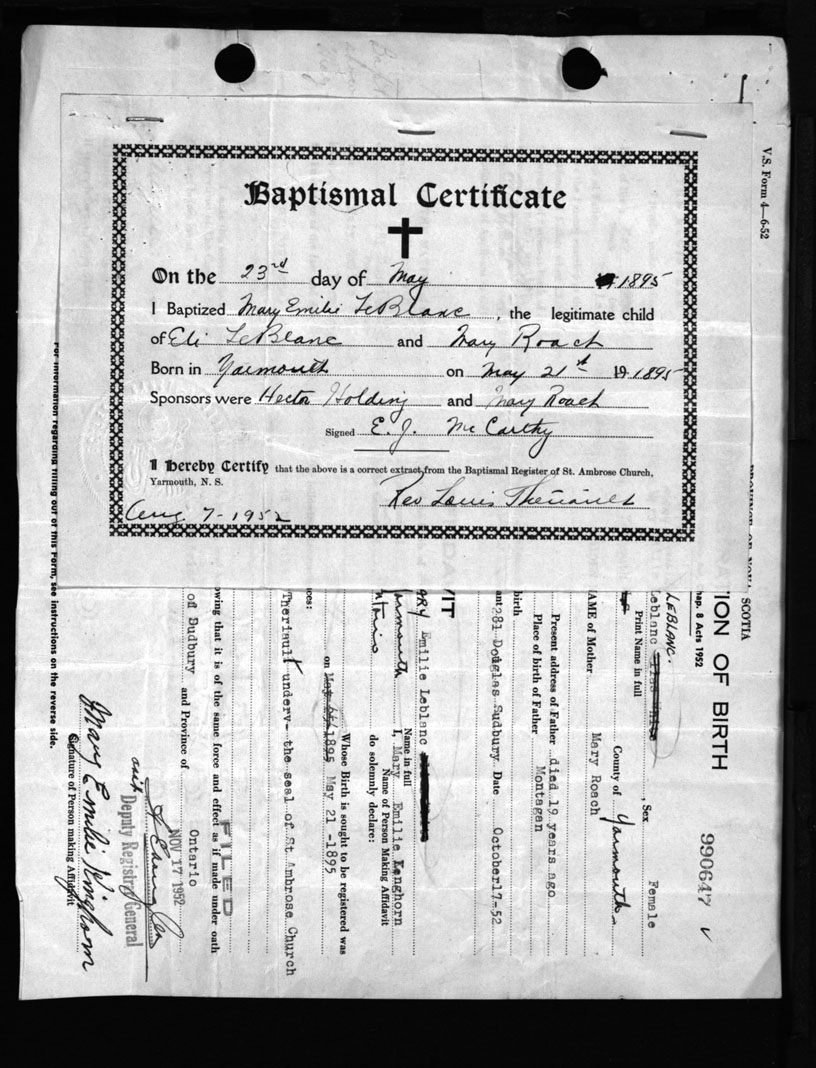 V.S. Form 4—6-52
Baptismal Certificate
On the 23rd day of May 1895
I Baptized Mary Emilie LeBlanc, the legitimate child
of Eli LeBlanc and Mary Roach
Born in Yarmouth on May 21st 19 1895
Sponsors were Hector Holding and Mary Roach
Signed E. J. McCarthy
I Hereby Certify that the above is a correct extract from the Baptismal Register of St. Ambrose Church,
Yarmouth, N. S.
Rev Louis Theriault
Aug. 7-1952
SCOTIA
TION OF BIRTH
hap. 8 Acts 1952
990647
LEBLANC.
Leblanc
Print Name in full
, Sex Female
County of Yarmouth
AME of Mother Mary Roach
Present address of Father died 19 years ago
Place of birth of Father Montagan
birth
ant 281 Douglas Sudbury Date October17-52
VIT
ARY Emilie Leblanc
Name in full
armouth I, Mary Emilie Langhorn
Name of Person Making Affidavit
ntario do solemnly declare:
Whose Birth is sought to be registered was
on 1895 May 21 -1895
nces:
Theriault underv- the seal of St Ambrose Church
owing that it is of the same force and effect as if made under oath
FILED
of Sudbury and Province of Ontario
NOV 17 1952
Deputy Registrar General
Signature of Person making Affidavit
For information regarding filling out of this Form, see instructions on the reverse side.